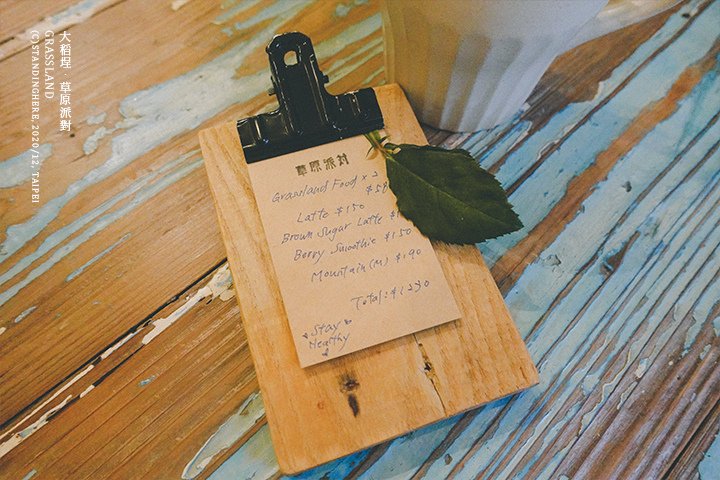 大稻埕．草原派對
GRASSLAND
(C)STANDINGHERE, 2020/12, TAIPEI
草原派対
Grassland Food x 2
$58
Latte $150
Brown Sugar Latte $
Berry Smoothie $150
Mountain (M) $190
Total: $1230
Stay
Healthy